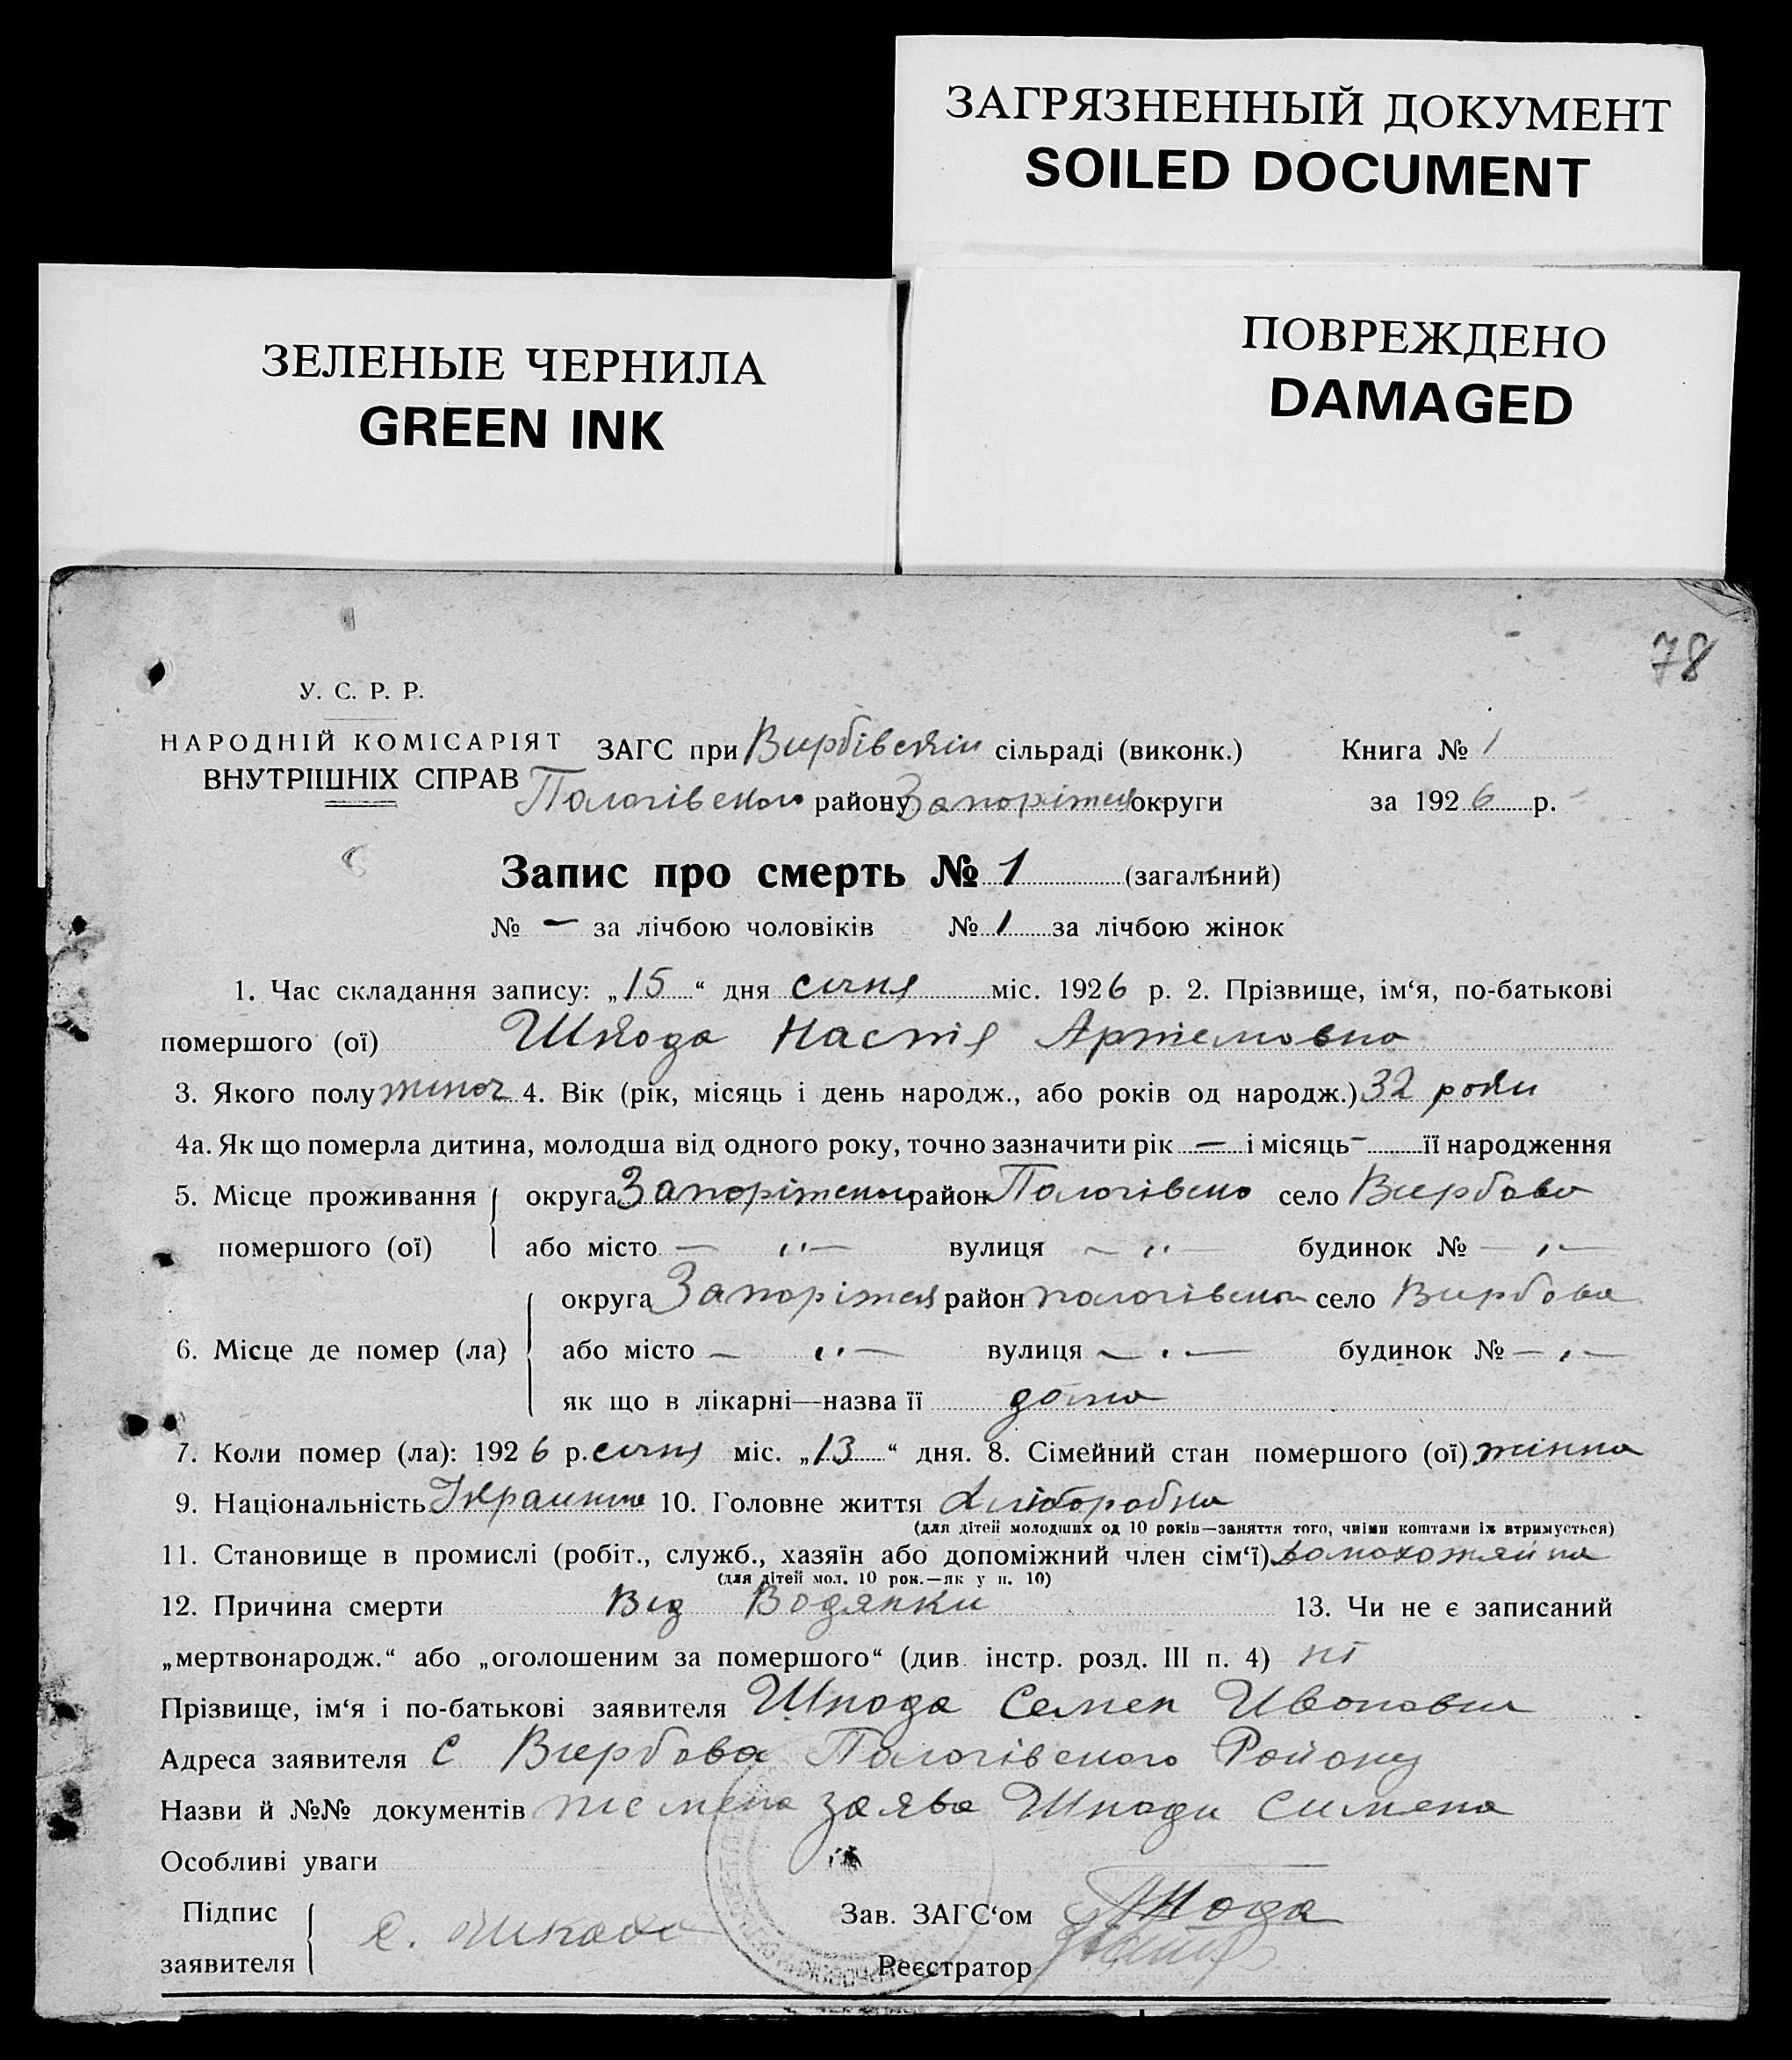 ЗАГРЯЗНЕННЫЙ ДОКУМЕНТ
SOILED DOCUMENT
ЗЕЛЕНЫЕ ЧЕРНИЛА
GREEN INK
ПОВРЕЖДЕНО
DAMAGED
78
У. С. Р. Р.
НАРОДНІЙ КОМІСАРІЯТ
ВНУТРІШНІХ СПРАВ
ЗАГС при Вирбівскій сільраді (виконк.) Книга № 1
Пологівского району Запоріжся округи за 1926 р.
Запис про смерть № 1 (загальний)
№ — за лічбою чоловіків № 1 за лічбою жінок
1. Час складання запису: „15“ дня січня міс. 1926 р. 2. Прізвище, ім‘я, по-батькові
помершого (ої) Шкода Настія Артемовна
3. Якого полу жіноч 4. Вік (рік, місяць і день народж., або років од народж.) 32 роки
4а. Як що померла дитина, молодша від одного року, точно зазначити рік — і місяць - її народження
5. Місце проживання округа район село Вирбова
помершого (ої) або місто — „ — вулиця — „ — будинок № — „ —
округа Запоріжся район село Вирбова
6. Місце де помер (ла) або місто — „ — вулиця — „ — будинок № — „ —
як що в лікарні—назва її дома
7. Коли помер (ла): 1926 р. січня міс. „13“ дня. 8. Сімейний стан помершого (ої) жінна
9. Національність 10. Головне життя
(для дітей молодших од 10 років—заняття того, чиїми коштами їх втримується)
11. Становище в промислі (робіт., служб., хазяїн або допоміжний член сім‘ї)
(для дітей мол. 10 рок.—як у п. 10)
12. Причина смерти Від Водянки 13. Чи не є записаний
„мертвонародж.“ або „оголошеним за помершого“ (див. інстр. розд. III п. 4) ні
Прізвище, ім‘я і по-батькові заявителя Шкода Семен Ивонович
Адреса заявителя с Вирбова Пологівского Району
Назви й №№ документів заява Шкоди Симена
Особливі уваги
Підпис
заявителя
С. Шкода
Зав. ЗАГС‘ом
Реєстратор